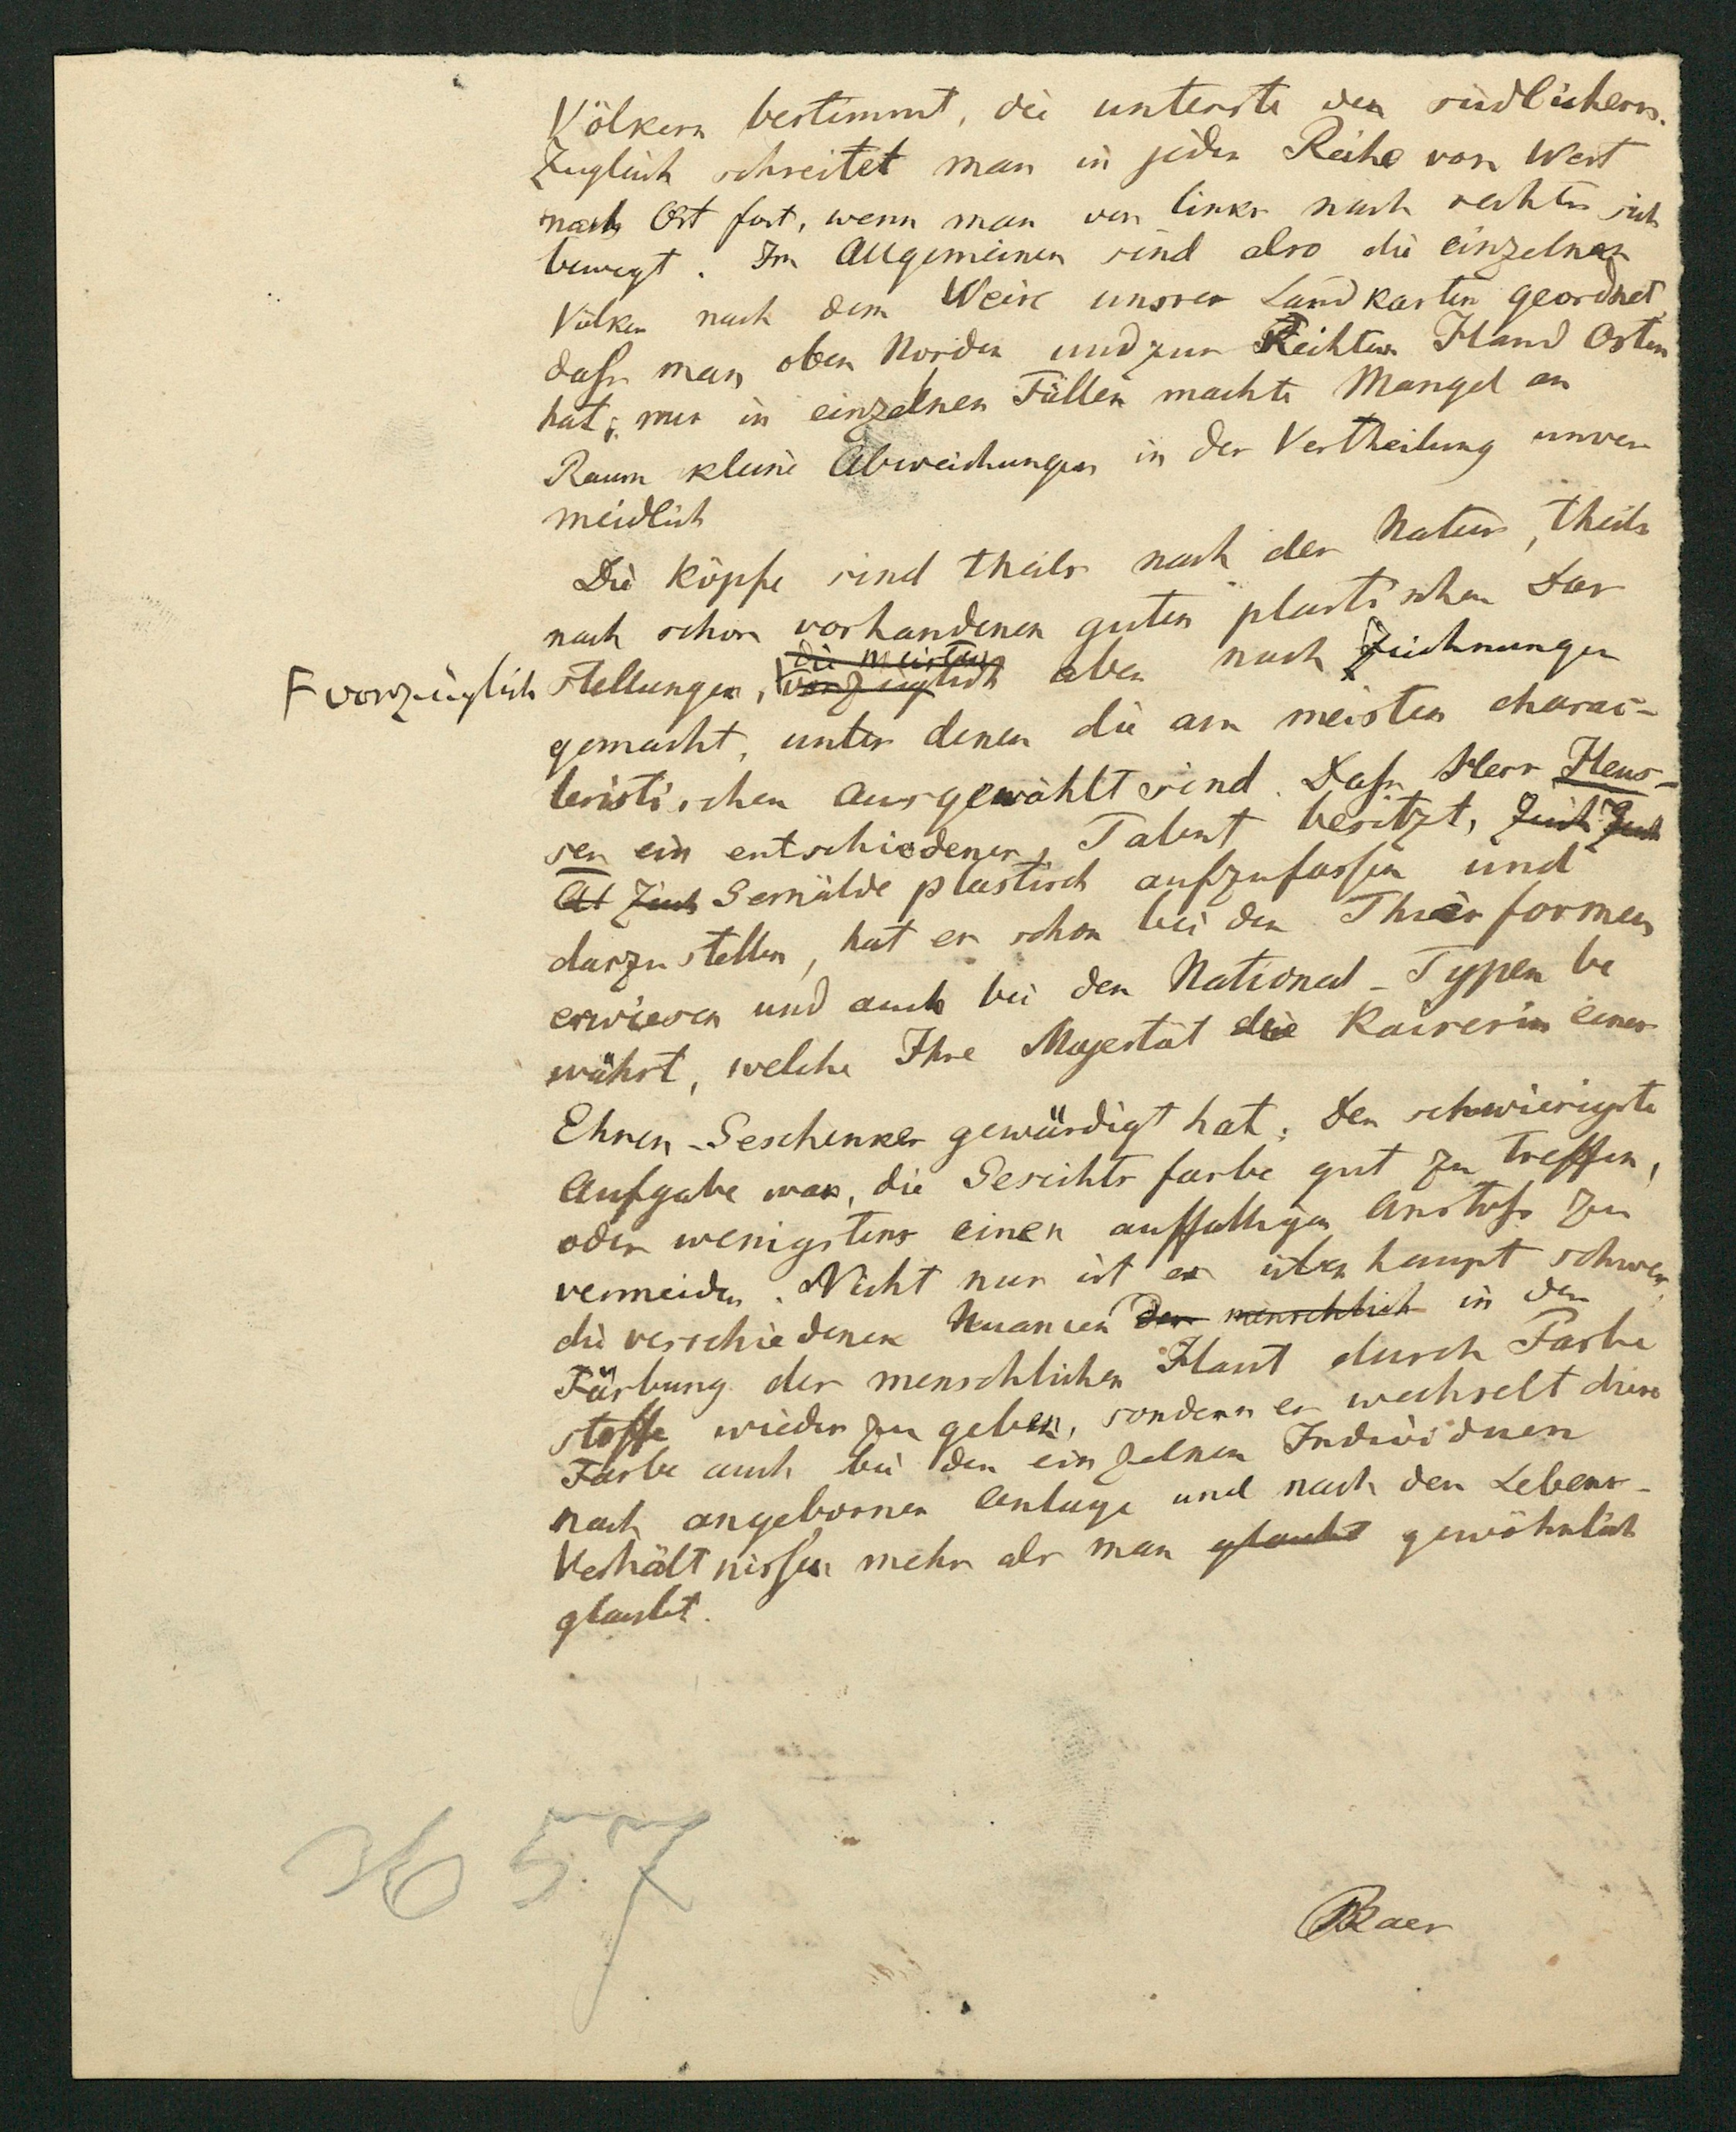 Völkern bestimmt, die unterste den südlichern.
Zugleich schreitet man in jeder Reihe von West
nach Ost fort, wenn man von links nach rechts sich
bewegt. Im Allgemeinen sind also die einzelnen
Völker nach dem Weise unsrer Landkarten geordnet,
daß man oben Norden und zur Rechten Hand Osten
hat; nur in einzelnen Fällen machte Mangel an
Raum kleine Abweichungen in der Vertheilung unver
meidlich
Die Köpfe sind theils nach der Natur, theils
nach schon vorhandenen guten plastischen Dar
die meisten
F vorzüglich stellungen, vorzüglich aber nach Zeichnungen
gemacht, unter denen die am meisten charac-
teristischen ausgewählt sind. Daß Herr Heus-
ser ein entschiedenes Talent besitzt, Zeich
Zeich Gemälde plastisch aufzufassen und
darzustellen, hat er schon bei den Thierformen
erwiesen und auch bei den National-Typen be
währt, welche Ihre Majestät die Kaiserin eines
Ehren-Geschenkes gewürdigt hat. Den schwierigste
Aufgabe war, die Gesichtsfarbe gut zu treffen,
oder wenigstens einen auffälligen Anstoß zu
vermeiden. Nicht nur ist es überhaupt schwer,
die verschiedenen Nuancen der menschlich in der
Färbung der menschlichen Haut durch Farbe
stoffe wieder zu geben, sondern es wechselt diese
Farbe auch bei den einzelnen Individuen
nach angebornen Anlage und nach den Lebens-
Verhältnissen mehr als man glaubt gewöhnlich
glaubt.
36 57
Baer